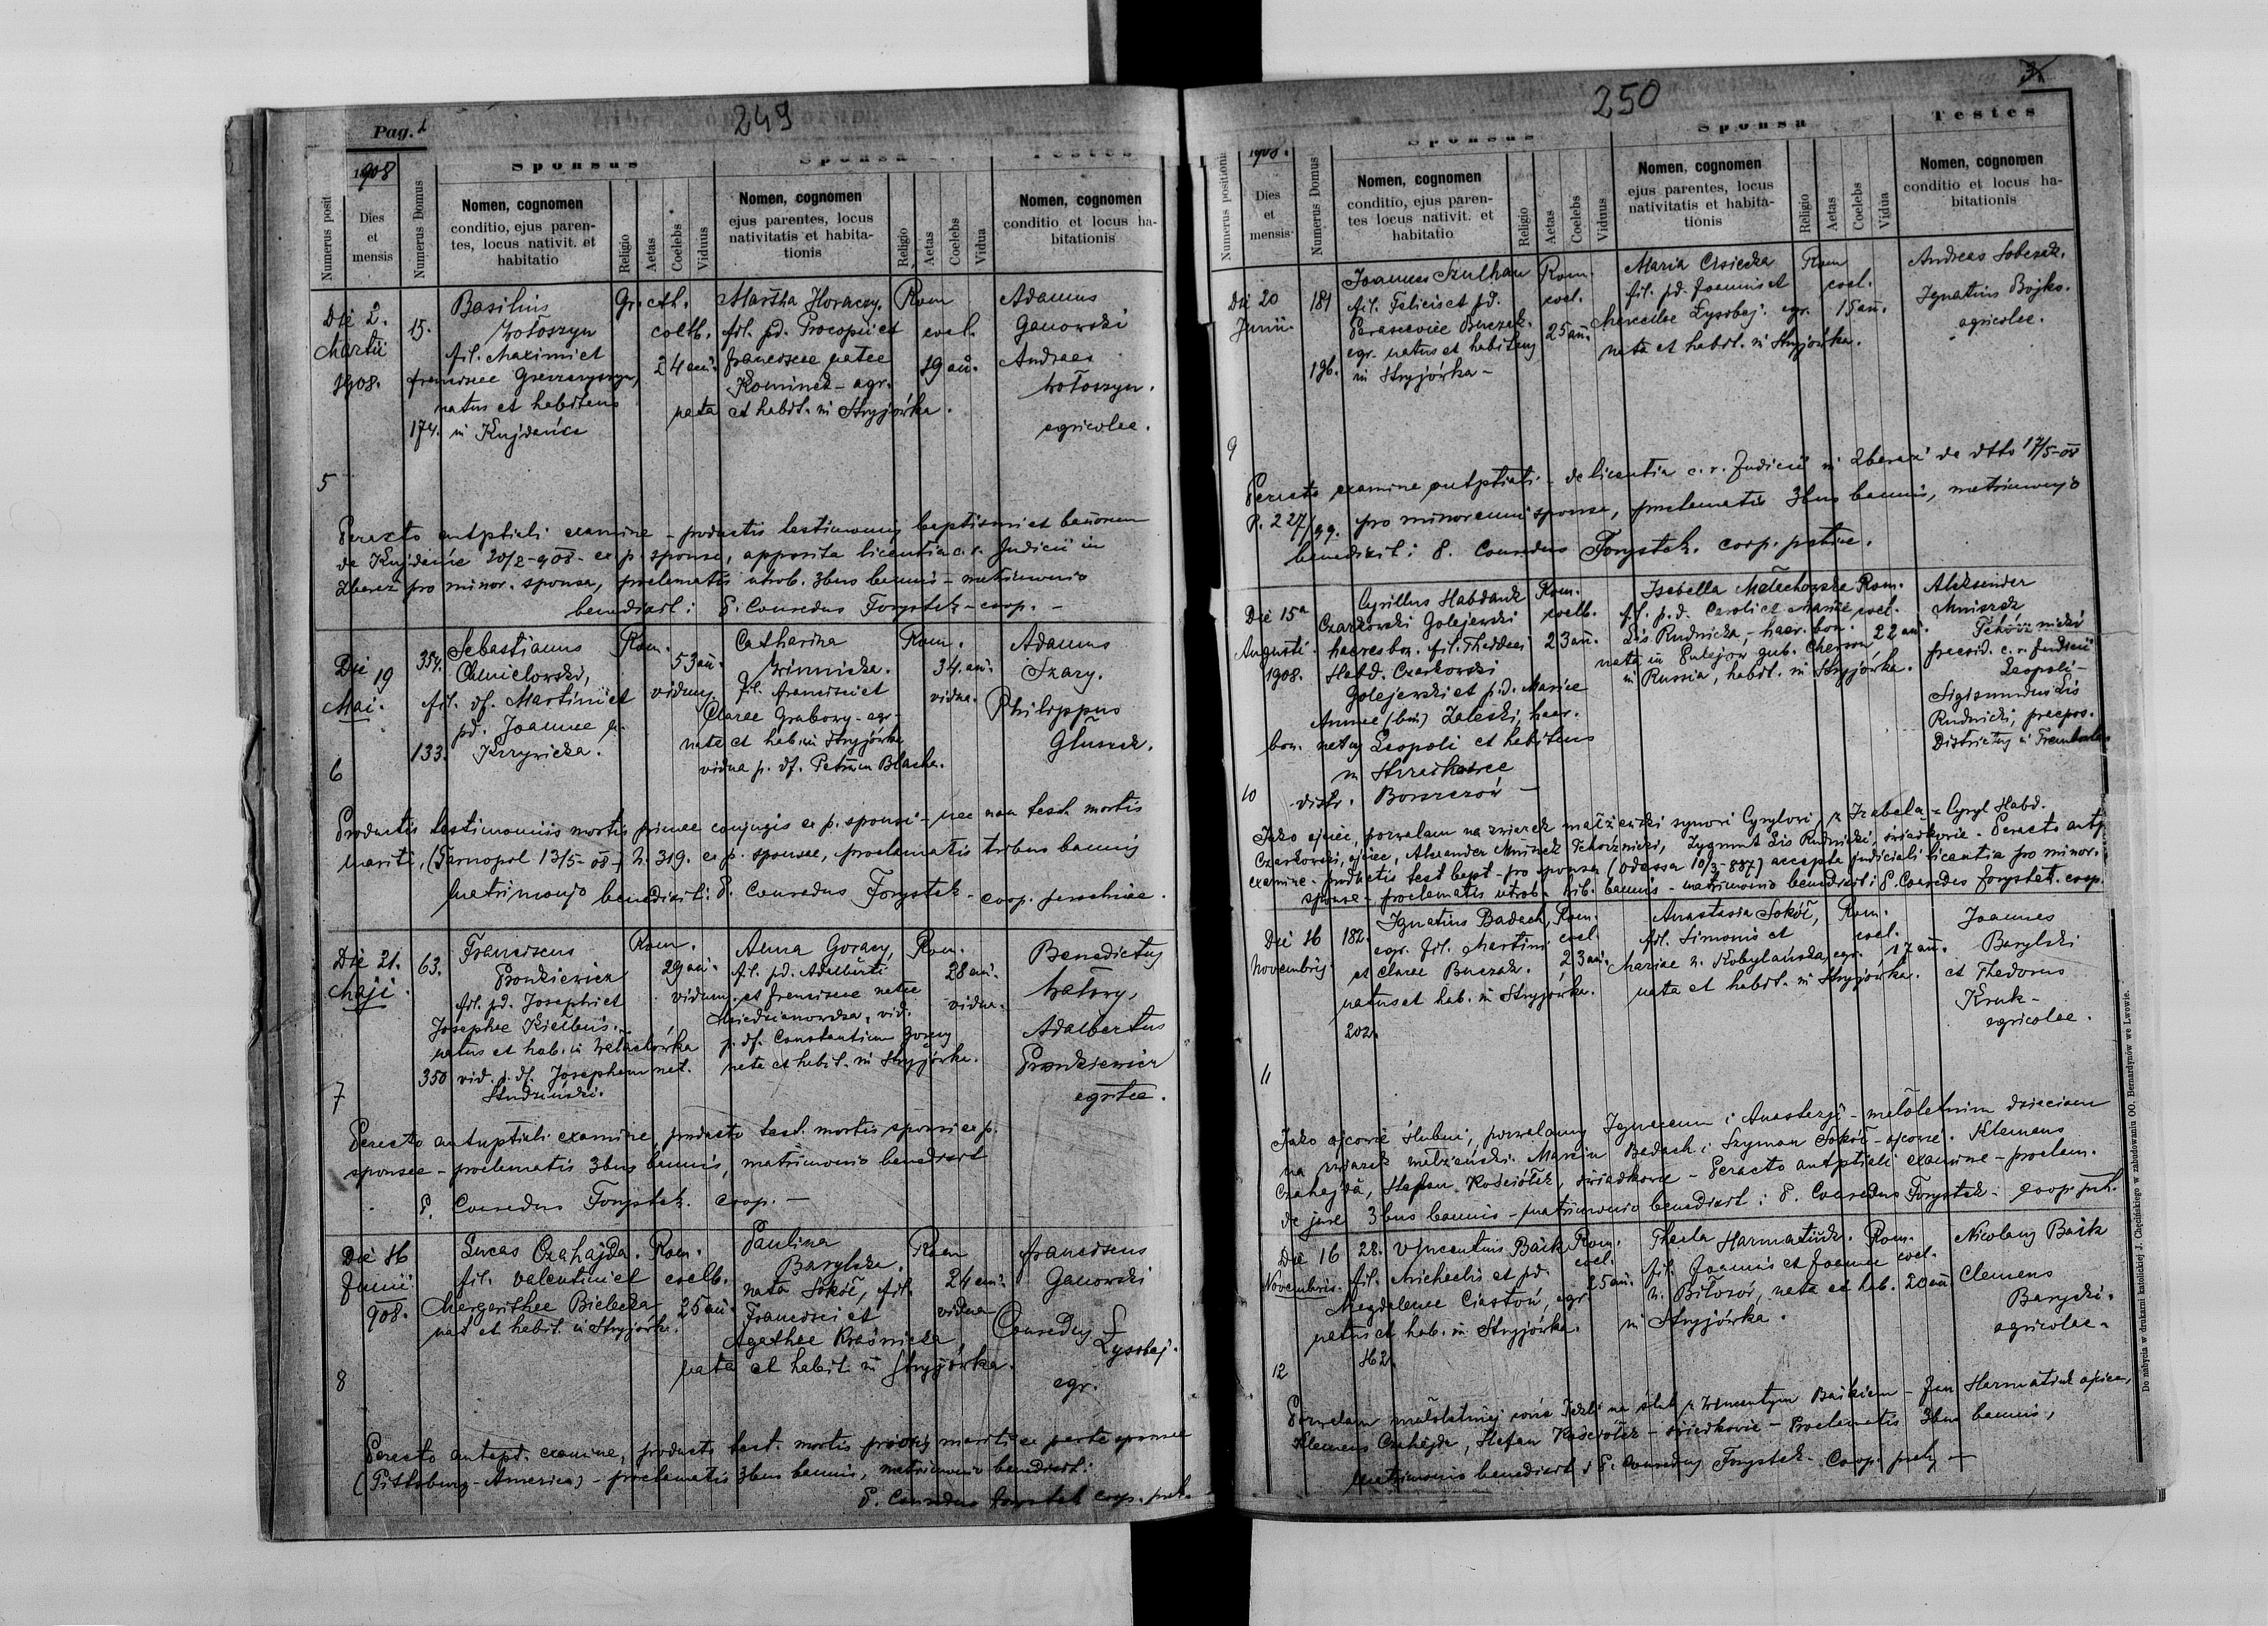 Pag. 1
249
1908
Sponsus
Sponsa
Testes
Numerus posit
Dies et mensis
Numerus Domus
Nomen, cognomen
conditio, ejus paren-
tes, locus nativit. et
habitatio
Religio
Aetas
Coelebs
Viduus
Nomen, cognomen
ejus parentes, locus
nativitatis et habita-
tionis
Religio
Aetas
Coelebs
Vidua
Nomen, cognomen
conditio et locus ha-
bitationis
5
Die 2.
Martii
1908.
15.
174.
Basilius
Wołoszyn
fil. Maximi et
Franciscae
natus et habitans
in Kujdańce
Gr. cth.
coelb.
24 an.
Martha Horaczy.
fil. pd. Procopii et
Franciscae natae
Kominek - agr.
nata et habit. in Stryjówka.
Rom
coel.
19 an.
Adamus
Ganowski
Andreas
Wołoszyn.
agricolae.
Peracto antptiali examine - productis testimoniis baptismi et bannorum
de Kujdańce 20/2-908 - ex p. sponsi, apposita licentia c. r. Judicii in
Zbaraż pro minor. sponsa, proclamatis utrob. 3bus bannis - matrimonio
benedixit: P. Conradus Forystek - coop. -
6
Die 19
Mai.
354.
133.
Sebastianus
Chmielowski,
fil. df. Martini et
pd. Joannae n.
Krzywicka.
Rom.
53 an.
viduus
Catharina
Winnicka.
fil. Francisci et
Clarae Grabowy - agr -
nata et hab. in Stryjówka
vidua p. df. Petrum Blacha.
Rom.
34. an.
vidua.
Adamus
Szary.
Philippus
Głuszek.
Productis testimoniis mortis primae conjugis ex p. sponsi - nec non test. mortis
mariti, (Tarnopol 13/5-08 -) N. 319. ex p. sponsae, proclamatis tribus bannis
Matrimonjo benedixit: P. Conradus Forystek - coop. parochiae.
7
Die 21.
Maji.
63.
350
Franciscus
Pronkiewicz
fil. pd. Josephi et
Josephae Kiełbus.
natus et hab. in
vid. p. df. Josepham nat.
Studzińska.
Rom.
29 an.
viduus.
Anna Goracy,
fil. pd. Adalberti
et Franciscae natae
Niedzianowska, vid.
p. df. Constantium Goracy
nata et habit. in Stryjówka.
Rom.
28 an.
vidua.
Benedictus
Watory,
Adalbertus
Pronkiewicz
agrlae.
Peracto antnuptiali examine, producto test. mortis sponsi ex p.
sponsae - proclamatis 3bus bannis, matrimonio benedixit
P. Conradus Forystek. coop. -
8
Die 16
Junii
908.
Lucas Czahajda.
fil. Valentini et
Margarithae Bielecka
nat et habit. in Stryjówk.
Rom.
coelb.
25 an.
Paulina
Barylska.
nata Sokół, fil.
Francisci et
Agathae Kraśnicka,
nata et habit. in Stryjówka.
Rom
24 an.
vidua
Franciscus
Ganowski
Conradus
Lysobej.
agr.
Peracto antept. examine, producto test. mortis prioris mariti ex parte sponsae
(Pittsburg - America) - proclamatis 3bus bannis, matrimonio benedixit:
P. Conradus Forystek coop. par.
250
3
1908.
Sponsus
Sponsa
Testes
Numerus positionis
Dies et mensis
Numerus Domus
Nomen, cognomen
conditio, ejus paren-
tes locus nativit. et
habitatio
Religio
Aetas
Coelebs
Viduus
Nomen, cognomen
ejus parentes, locus
nativitatis et habita-
tionis
Religio
Aetas
Coelebs
Vidua
Nomen, cognomen
conditio et locus ha-
bitationis
9
Die 20
Junii.
181
196.
Joannes Szulhan
fil. Felicis et pd.
Parasceviae Burczak.
agr. natus et habitans
in Stryjówka -
Rom.
coel.
25 an.
Maria Cisiecka
fil. pd. Joannis et
Marcellae Lysobej. agr.
nata et habit. in Stryjówka.
Rom
coel.
15 an.
Andreas Sobczak.
Ignatius Bojko.
agricolae.
Peracto examine antptiali - de licentia c. r. Judicii in Zbaraż de dtto 17/5-08
P. 227/99. pro minorenni sponsa, proclamatis 3bus bannis, matrimonjo
benedixit: P. Conradus Forystek. coop. parochiae.
10
Die 15a
Augusti
1908.
Cyrillus Habdank
Czarkowski Golejewski
haeres bon. fil. Thaddaei
Habd. Czarkowski
Golejewski et p.d. Mariae
Annae (bin) Zaleski, haer.
bon. natus Leopoli et habitans
in
distr. Borszczów -
Rom.
coelb.
23 an.
Isabella Małachowska
fil. p.d. Caroli et Mariae
Lis Rudnicka - haer. bon.
nata in Pulejow gub. Cherson
in Russia, habit. in Stryjówka.
Rom.
coel.
22 an.
Aleksander
Mniszek
Tchórznicki
praesid. c. r. Judicii
Leopoli -
Sigismundus Lis
Rudnicki, praepos.
Districtus in Trembowla
Jako ojciec, pozwalam na związek małżeński synowi Cyrylowi, z Izabelą - Cyryl Habd.
Czarkowski, ojciec, Alexander Mniszek Tchorznicki, Zygmunt Lis Rudnicki, świadkowie - Peracto antp
examine - productis test bapt - pro sponsa (Odessa 10/3-887) accepta judiciali licentia pro minor.
sponsa - proclamatis utrob. trib. bannis - matrimonio benedixit: P. Conradus Forystek. coop.
11
Die 16
Novembris
182.
202.
Ignatius Badach,
agr. fil. Martini
et Clarae Burczak.
natus et hab. in Stryjówka.
Rom.
coel.
23 an.
Anastasia Sokół,
fil. Simonis et
Mariae n. Kobylańska, agr.
nata et habit. in Stryjówka.
Rom.
coel.
17 an.
Joannes
Barylski
et Thedorus
Kruk -
agricolae.
Jako ojcowie ślubni, pozwalamy Ignacemu i Anastazji - małoletnim dzieciom
na związek małżeński. Marcin Badach i Szymon Sokół - ojcowie. Klemens
Czahajda, Stefan Kościółek, świadkowie - Peracto antptiali examine - proclam.
de jure 3bus bannis - matrimonio benedixit: P. Conradus Forystek - coop. prch.
12
Die 16
Novembris.
28.
162.
Vincentius Baik
fil. Michaelis et pd.
Magdalenae Ciastoń, agr
natus et hab. in Stryjówka.
Rom.
coel.
25 an.
Thecla Harmatiuk.
fil. Joannis et Joannae
n. Biłozór, nata et hab.
in Stryjówka.
Rom.
coel.
20 an.
Nicolaus Baik
Clemens
Barycki.
agricolae.
Pozwalam małoletniej córce Tekli na ślub z Wincentym Baikiem - Jan Harmatiuk ojciec,
Klemens Czahajda, Stefan Kościółek - świadkowie - Proclamatis 3bus bannis,
matrimonio benedixit: P. Conradus Forystek - Coop. prch.
Do nabycia w drukarni katolickiej J. Chęcińskiego w zabudowaniu OO. Bernardynów we Lwowie.